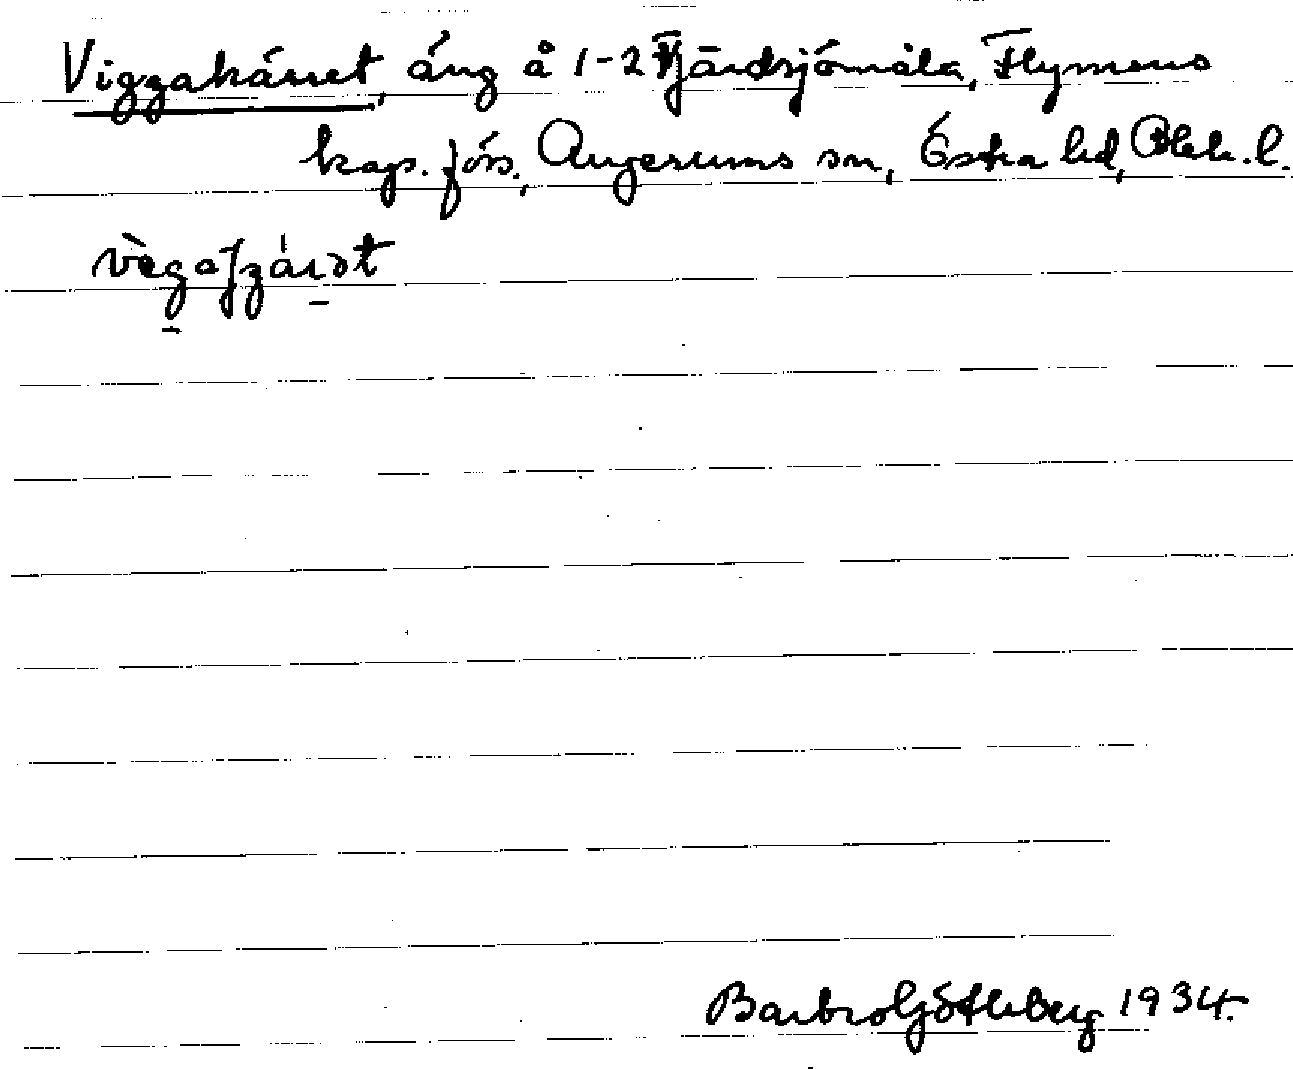 Viggakärret, äng å 1-2 Fjärdsjömåla, Flymens
kap. förs., Augerums sn, Östra hd, Blek. l.
Barbro Götleberg 1934.